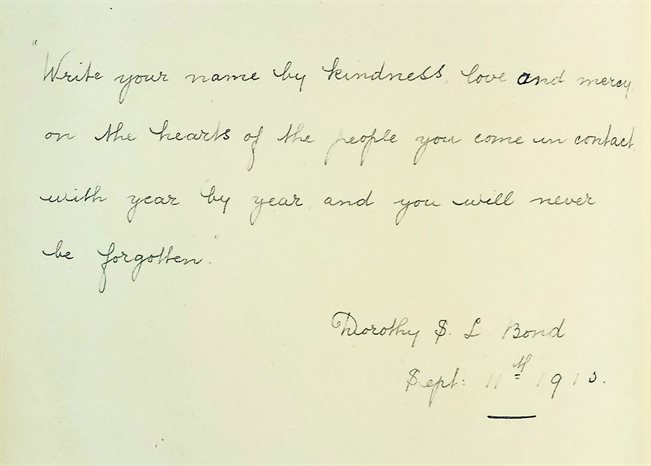 "Write your name by kindness, love and mercy
on the hearts of the people you come in contact
with year by year and you will never
be forgotten."
Dorothy S. L Bond
Sept: 11th